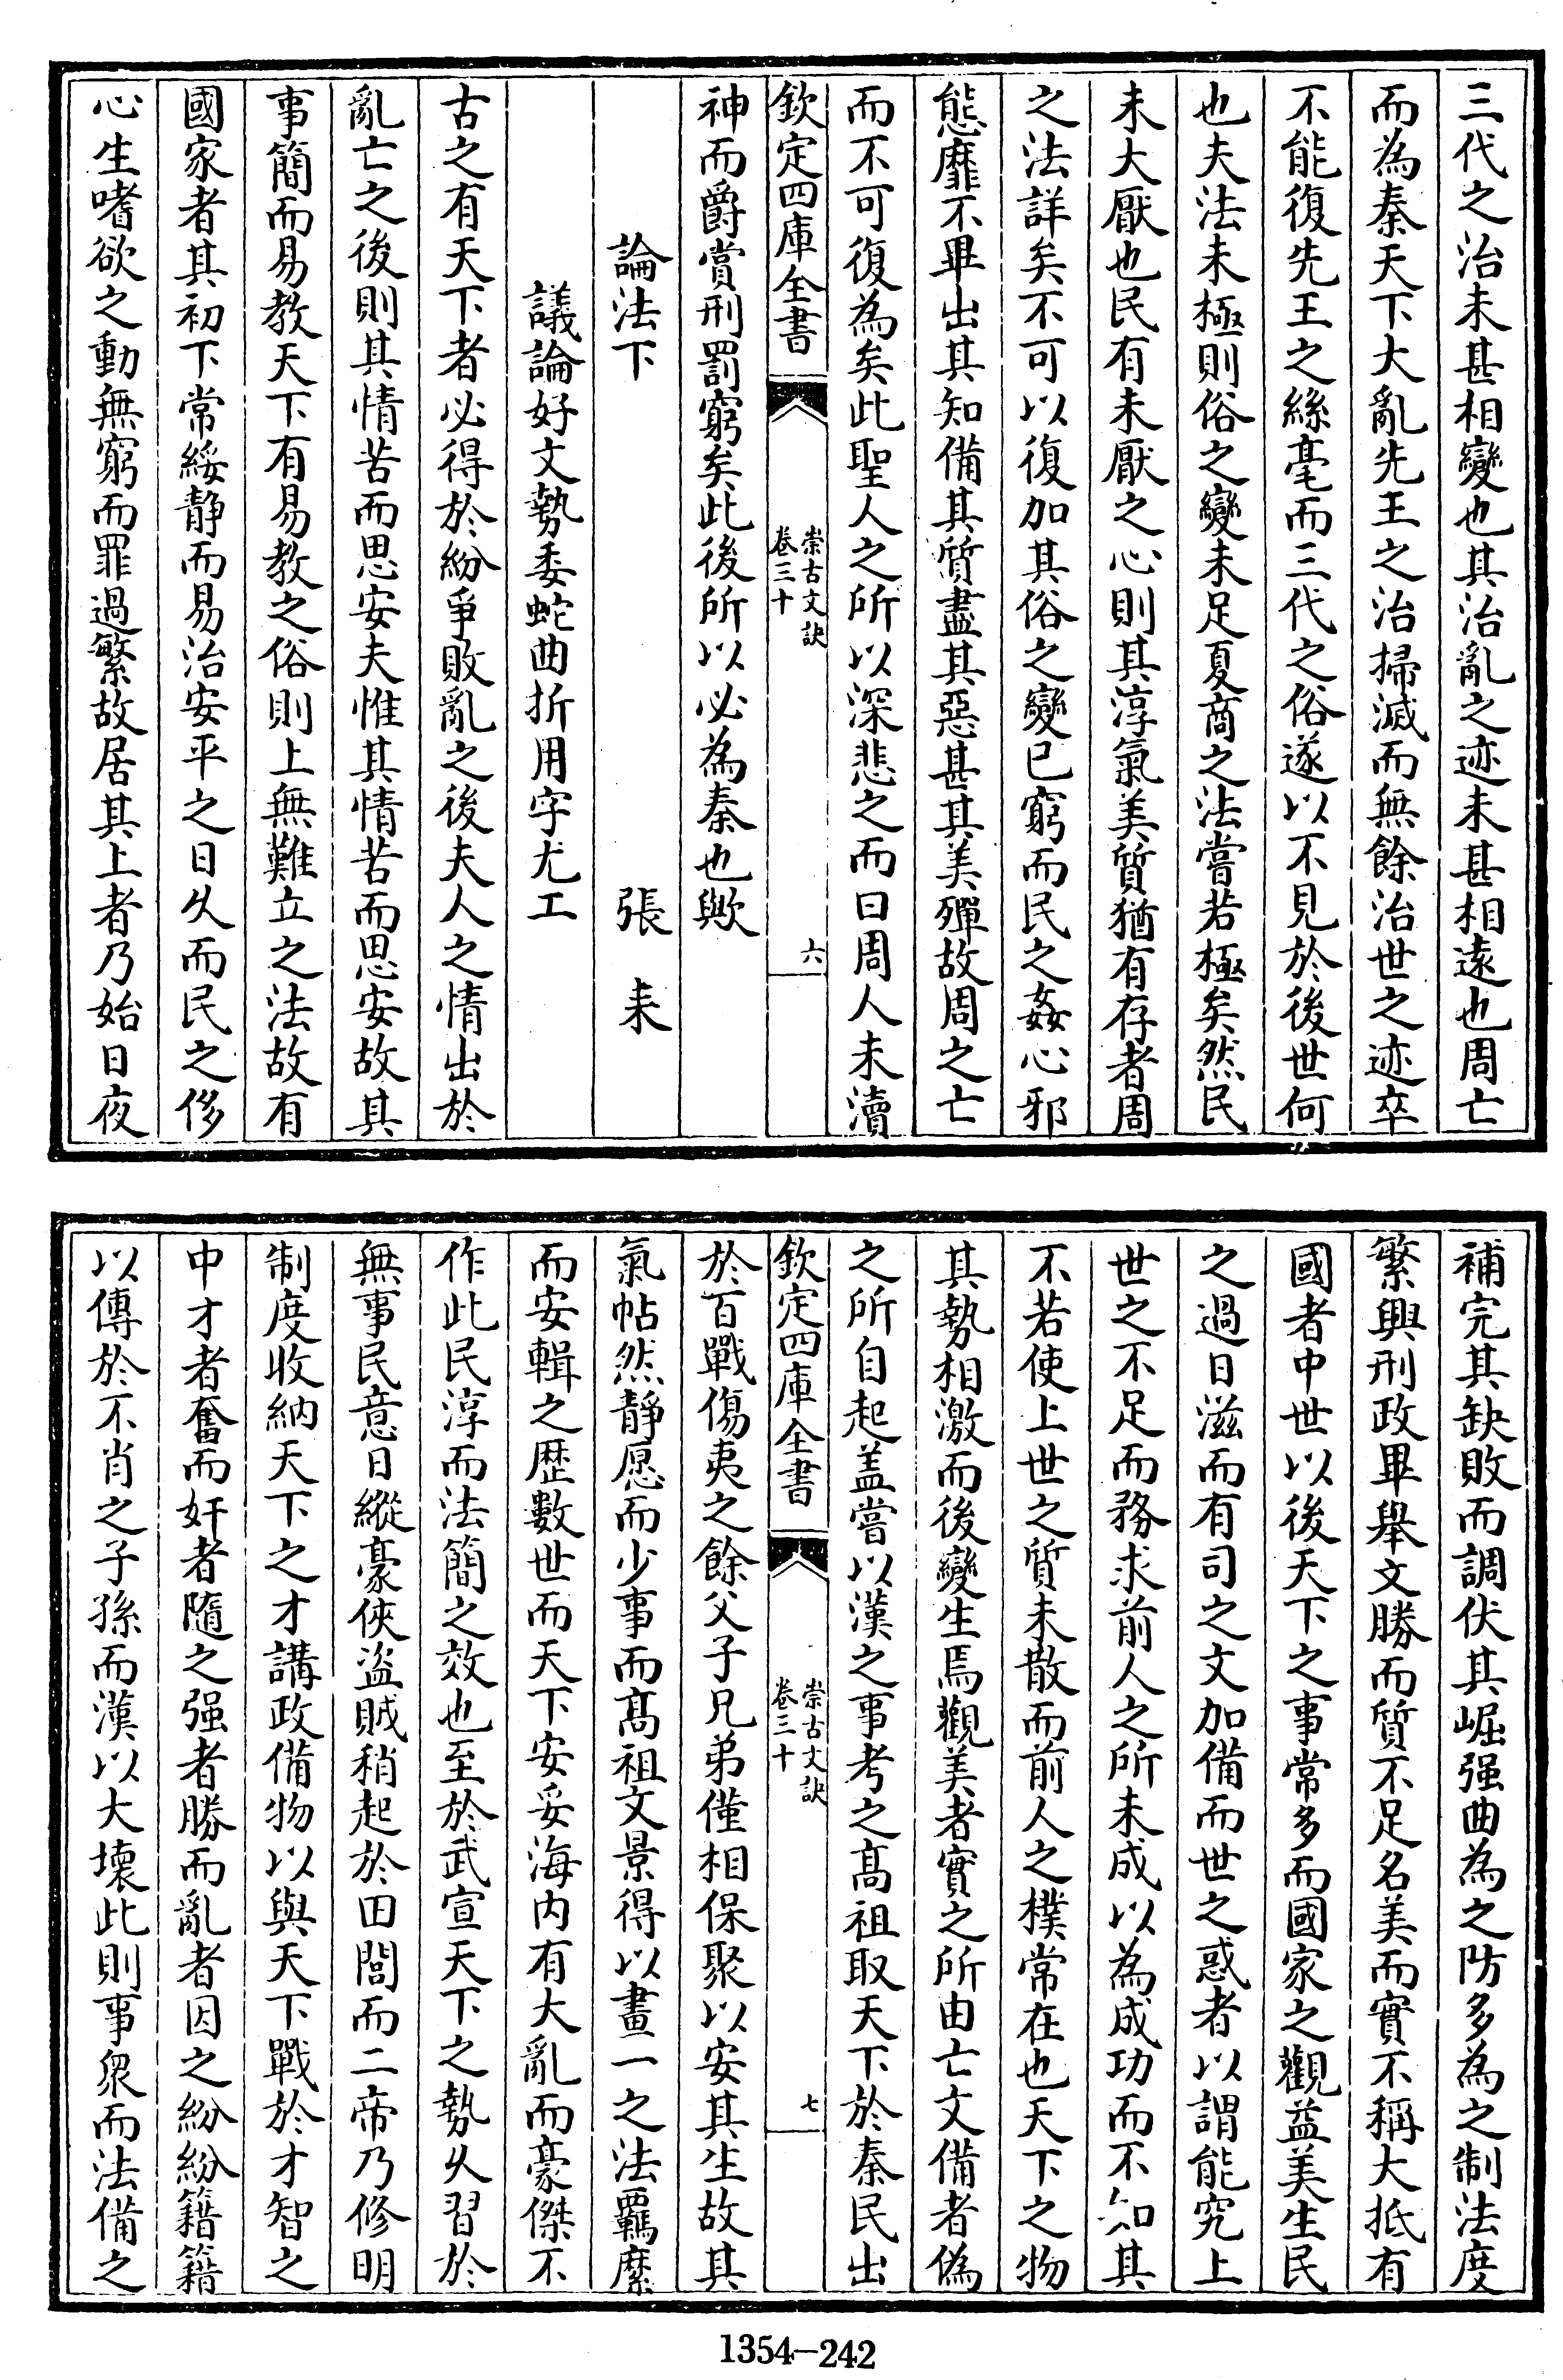 三代之治未甚相變也其治亂之迹未甚相遠也周亡
而為秦天下大亂先王之治掃滅而無餘治世之迹卒
不能復先王之絲毫而三代之俗遂以不見於後世何
也夫法未極則俗之變未足夏商之法嘗若極矣然民
未大厭也民有未厭之心則其淳氣美質猶有存者周
之法詳矣不可以復加其俗之變已窮而民之姦心邪
態靡不畢出其知備其質盡其惡甚其美殫故周之亡
而不可復為矣此聖人之所以深悲之而曰周人未瀆
欽定四庫全書
崇古文訣
卷三十
六
神而爵賞刑罰窮矣此後所以必為秦也歟
論法下 張耒
議論好文勢委蛇曲折用字尤工
古之有天下者必得於紛爭敗亂之後夫人之情出於
亂亡之後則其情苦而思安夫惟其情苦而思安故其
事簡而易教天下有易教之俗則上無難立之法故有
國家者其初下常綏静而易治安平之日久而民之侈
心生嗜欲之動無窮而罪過繁故居其上者乃始日夜
補完其缺敗而調伏其崛强曲為之防多為之制法度
繁興刑政畢舉文勝而質不足名美而實不稱大抵有
國者中世以後天下之事常多而國家之觀益美生民
之過日滋而有司之文加備而世之惑者以謂能究上
世之不足而務求前人之所未成以為成功而不知其
不若使上世之質未散而前人之樸常在也天下之物
其勢相激而後變生焉觀美者實之所由亡文備者偽
之所自起盖嘗以漢之事考之髙祖取天下於秦民出
欽定四庫全書
崇古文訣
卷三十
七
於百戰傷夷之餘父子兄弟僅相保聚以安其生故其
氣帖然靜愿而少事而髙祖文景得以畫一之法羈縻
而安輯之歴數世而天下安妥海内有大亂而豪傑不
作此民淳而法簡之效也至於武宣天下之勢久習於
無事民意日縱豪俠盜賊稍起於田閭而二帝乃修明
制度收納天下之才講政備物以與天下戰於才智之
中才者奮而奸者隨之强者勝而亂者因之紛紛籍籍
以傳於不肖之子孫而漢以大壞此則事衆而法備之
1354—242